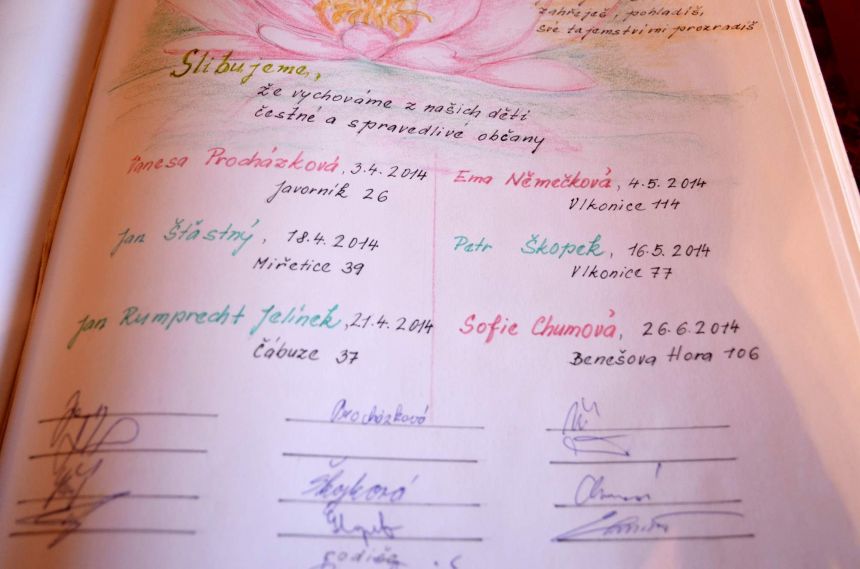 zahřeješ, pohladíš,
své tajemství mi prozradíš
Slibujeme,
že vychováme z našich dětí
čestné a spravedlivé občany
Vanesa Procházková, 3.4.2014
Javorník 26
Jan Šťastný, 18.4.2014
Miřetice 39
Jan Rumprecht Jelínek, 21.4.2014
Čábuze 37
Ema Němečková, 4.5.2014
Vlkonice 114
Petr Škopek, 16.5.2014
Vlkonice 77
Sofie Chumová, 26.6.2014
Benešova Hora 106
Procházková
rodiče